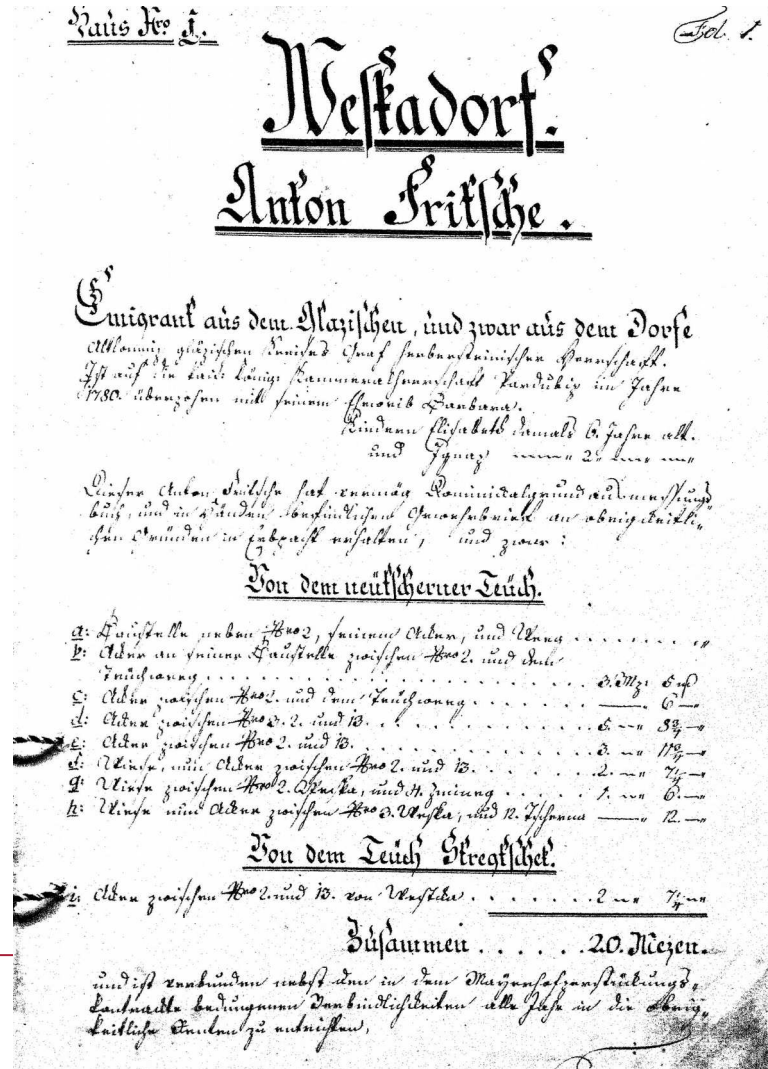 Haus Nro 1.
Fol. 1.
Weskadorf.
Anton Fritsche.
Emigrant aus dem Glazischen, und zwar aus dem Dorfe
Altlomniz, gläzischen Kreises Graf herbersteinischer Herrschaft.
Ist auf die kais: königl: Kammeralherrschaft Pardubiz im Jahre
1780. überzohen mit seinem Eheweib Barbara.
Kindern Elisabeth damals 6. Jahre alt.
und Ignaz 2.
Dieser Anton Fritsche hat vermög Dominicalgrundausmessungs
buch, und in Händen befindlichen Gewehrbrief an obrigkeitli-
chen Gründen in Erbpacht erhalten, und zwar:
Von dem neütscherner Teüch.
a: Baustelle neben Nro 2, seinem Acker, und Weeg
b: Acker an seiner Baustelle zwischen Nro 2. und dem
Teuchweeg 3. Mz: 5
c: Acker zwischen Nro 2. und dem Teuchweeg 6
d: Acker zwischen Nro 2. und 13. 5. 3 3/4
e: Acker zwischen Nro 2. und 13. 3. 11 3/4
f: Wiese, nun Acker zwischen Nro 2. und 13. 2. 7 1/4
g: Wiese zwischen Nro 2. Weska, und 4. 1. 6
h: Wiese nun Acker zwischen Nro 3. Weska, und 12. Tscherna 12.
Von dem Teüch Skregtschek.
i: Acker zwischen Nro 2. und 13. von Westka 2 7 1/4
Züsammen 20. Mezen.
und ist verbunden nebst den in dem Mayerhofzerstückungs-
kontrackte bedungenen Verbindlichkeiten alle Jahre in die obrig-
keitliche Renten zu entrichten,